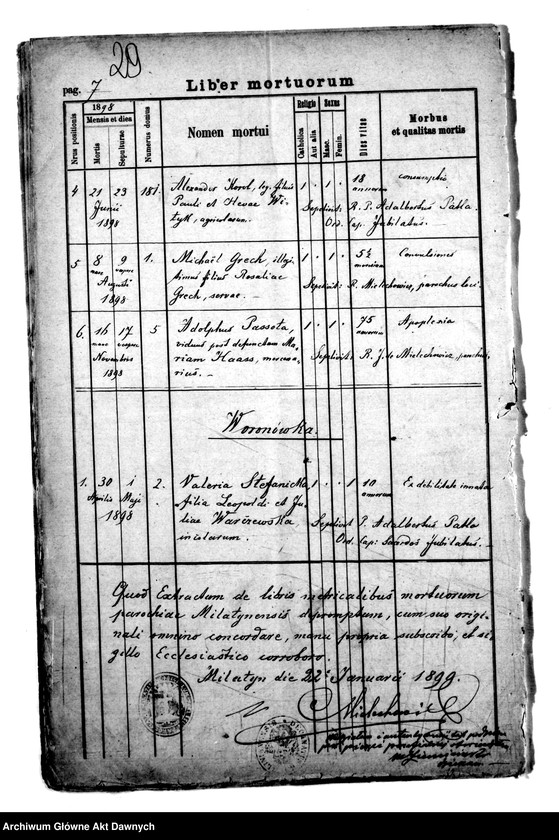 29
pag. 7
Liber mortuorum
Nrus positionis
1898
Mensis et dies
Mortis
Sepulturae
Numerus domus
Nomen mortui
Religio
Catholica
Aut alia
Sexus
Masc.
Femin.
Dies vitae
Morbus
et qualitas mortis
4 21 23 181. Alexander Korol, leg. filius 1 . 1 . 18 consumptio
Junii Pauli et Hevae Wi- annorum
1898 tyk, agricolarum. Sepelivit: R. P. Adalbertus Patla
Ord. Cap. Jubilatus.
5 8 9 1. Michaël Grech, illegi- 1 . 1 . 5½ Convulsiones
Augusti timus filius Rosaliae mensium
1898 Grech, servae. — Sepelivit: R. Mielechowicz, parochus loci.
6. 16 17 5 Adolphus Passota, 1 . 1 . 75 Apoplexia
Novembris viduus post defunctam Ma- annorum
1898 riam Haass, mercena- Sepelivit: R. J. de Mielechowicz, parochus.
rius. —
Woronówka.
1. 30 1 2. Valeria Stefanicka 1 . . 1 10 Ex debilitate innata
Aprilis Maji filia Leopoldi et Ju- annorum
1898 liae Warzewska Sepelivit P. Adalbertus Patla
incolarum. Ord. Cap: Jubilatus. —
Quod Extractum de libris metricalibus mortuorum
parochiae Milatynensis depromptum, cum suo origi-
nali omnino concordare, manu propria subscribo, et si-
gillo Ecclesiastico corroboro.
Milatyn die 22. Januarii 1899.
Mielechowicz
Archiwum Główne Akt Dawnych